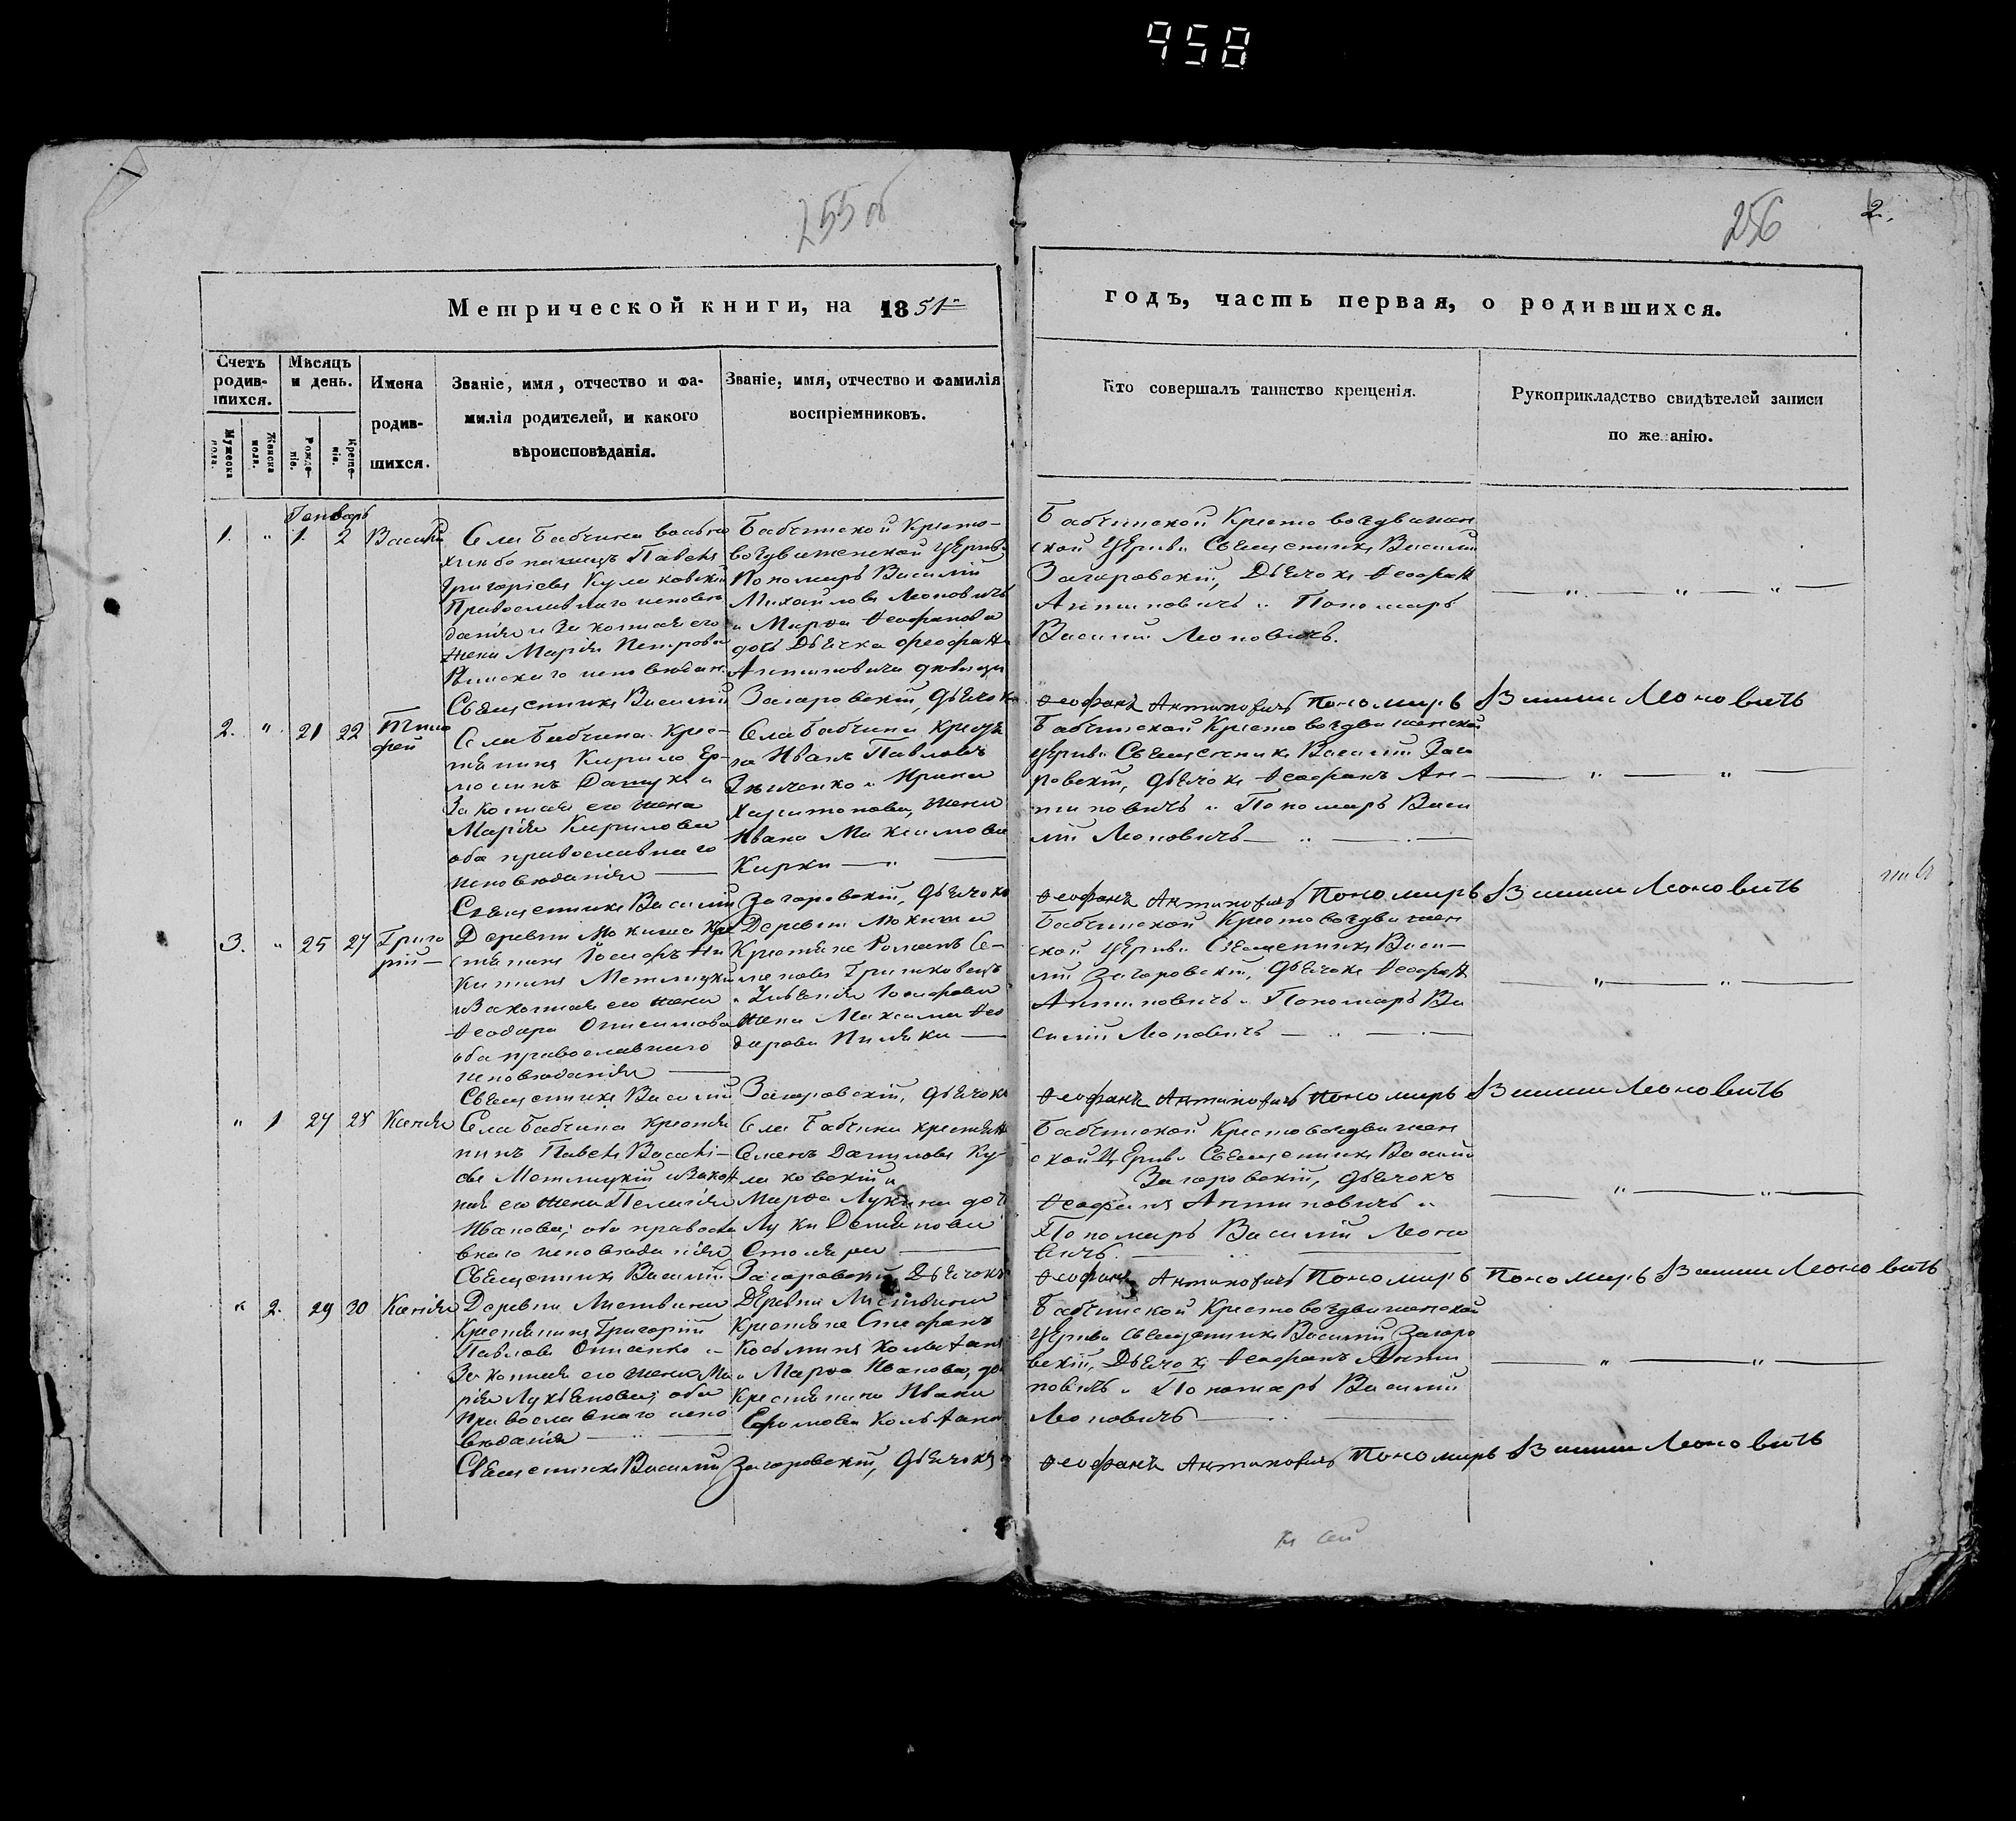 958
255 об
256
2.
Метрической книги, на 1851
годъ, часть первая, о родившихся.
Счетъ родив-
шихся.
Мужеска пола.
Женска пола.
Мѣсяцъ
и день.
Рожде-
ніе.
Креще-
ніе.
Имена
родив-
шихся.
Званіе, имя, отчество и фа-
милія родителей, и какого
вѣроисповѣданія.
Званіе, имя, отчество и фамилія
воспріемниковъ.
Кто совершалъ таинство крещенія.
Рукоприкладство свидѣтелей записи
по желанію.
Генварь
1. " 1. 2 Василій
Села Бабчина вольно
Павелъ
Григоріевъ Кулаковскій
Православнаго исповѣ
данія и Законная его
жена Марія Петрова
Римскаго исповѣдан.
Бабчинской Кресто-
воздвиженской Церкви
Пономарь Василій
Михайловъ Леоновичъ
и Марѳа Ѳеофанова
дочь Дьячка Ѳеофана
Антиповича
Бабчинской Крестовоздвижен
ской Церкви Священникъ Василій
Загоровскій, Дьячокъ Ѳеофанъ
Антиповичъ и Пономарь
Василій Леоновичъ.
Священникъ Василій Загоровскій, Дьячокъ Ѳеофанъ Антиповичъ Пономарь Василий Леоновичь
2. " 21 22 Тимо
фей
Села Бабчина Крес-
тьянинъ Кирило Ер-
молинъ Дашук и
Законная его жена
Марія Кирилова
оба православнаго
исповѣданія
Села Бабчина Кресть
не Иванъ Павловъ
Зинченко и Ирина
Харитонова, жена
Ивана Максимова
Кирки
Бабчинской Крестовоздвиженской
Церкви Священникъ Василій Заго
ровскій, Дьячокъ Ѳеофанъ Ан-
типовичъ и Пономарь Васи
лій Леоновичъ
Священникъ Василій Загоровскій, Дьячокъ Ѳеофанъ Антиповичъ Пономарь Василий Леоновичь
3. " 25 27 Григо
рій
Деревни Мокиша Кре
стьянинъ Іосифъ Ни
китинъ Метлицкій
и Законная его жена
Ѳеодора Онисимова
оба православнаго
исповѣданія
Деревни Мокиша
Крестьяне Романъ Се-
меновъ Гришковецъ
и Ульянія Іосифова
жена Максима Ѳео
дорова Пиляки
Бабчинской Крестовоздвижен
ской Церкви Священникъ Васи-
лій Загоровскій, Дьячокъ Ѳеофан
Антиповичъ и Пономарь Ва
силій Леоновичъ
Священникъ Василій Загоровскій, Дьячокъ Ѳеофанъ Антиповичъ Пономарь Василий Леоновичь
" 1 27 28 Ксенія
Села Бабчина Крестья
нинъ Павелъ Василі-
евъ Метлицкій и Закон
ная его жена Пелагія
Иванова; оба правосла
внаго исповѣданія
Села Бабчина крестьян
Семенъ Даниловъ Ку-
лаковскій и
Марѳа Лукина дочь
Луки Демьянова
Столяра
Бабчинской Крестовоздвижен
ской Церкви Священникъ Василій
Загоровскій, Дьячокъ
Ѳеофанъ Антиповичъ и
Пономарь Василій Леоно
вичъ
Священникъ Василій Загоровскій Дьячокъ Ѳеофанъ Антиповичъ Пономарь Пономарь Василий Леоновичь
" 2. 29 30 Ксенія
Деревни Листвина
Крестьянинъ Григорій
Павловъ Онисенко и
Законная его жена Ма
рія Лукьянова; оба
Православнаго испо
вѣданія
Деревни Листвина
Крестьяне Стефанъ
Косьминъ
и Марѳа Иванова, дочь
Крестьянина Ивана
Ефимова
Бабчинской Крестовоздвиженской
Церкви Священникъ Василій Загоро
вскій, Дьячокъ Ѳеофанъ Анти
повичъ и Пономарь Василій
Леоновичъ
Священникъ Василій Загоровскій, Дьячокъ Ѳеофанъ Антиповичъ Пономарь Василий Леоновичь